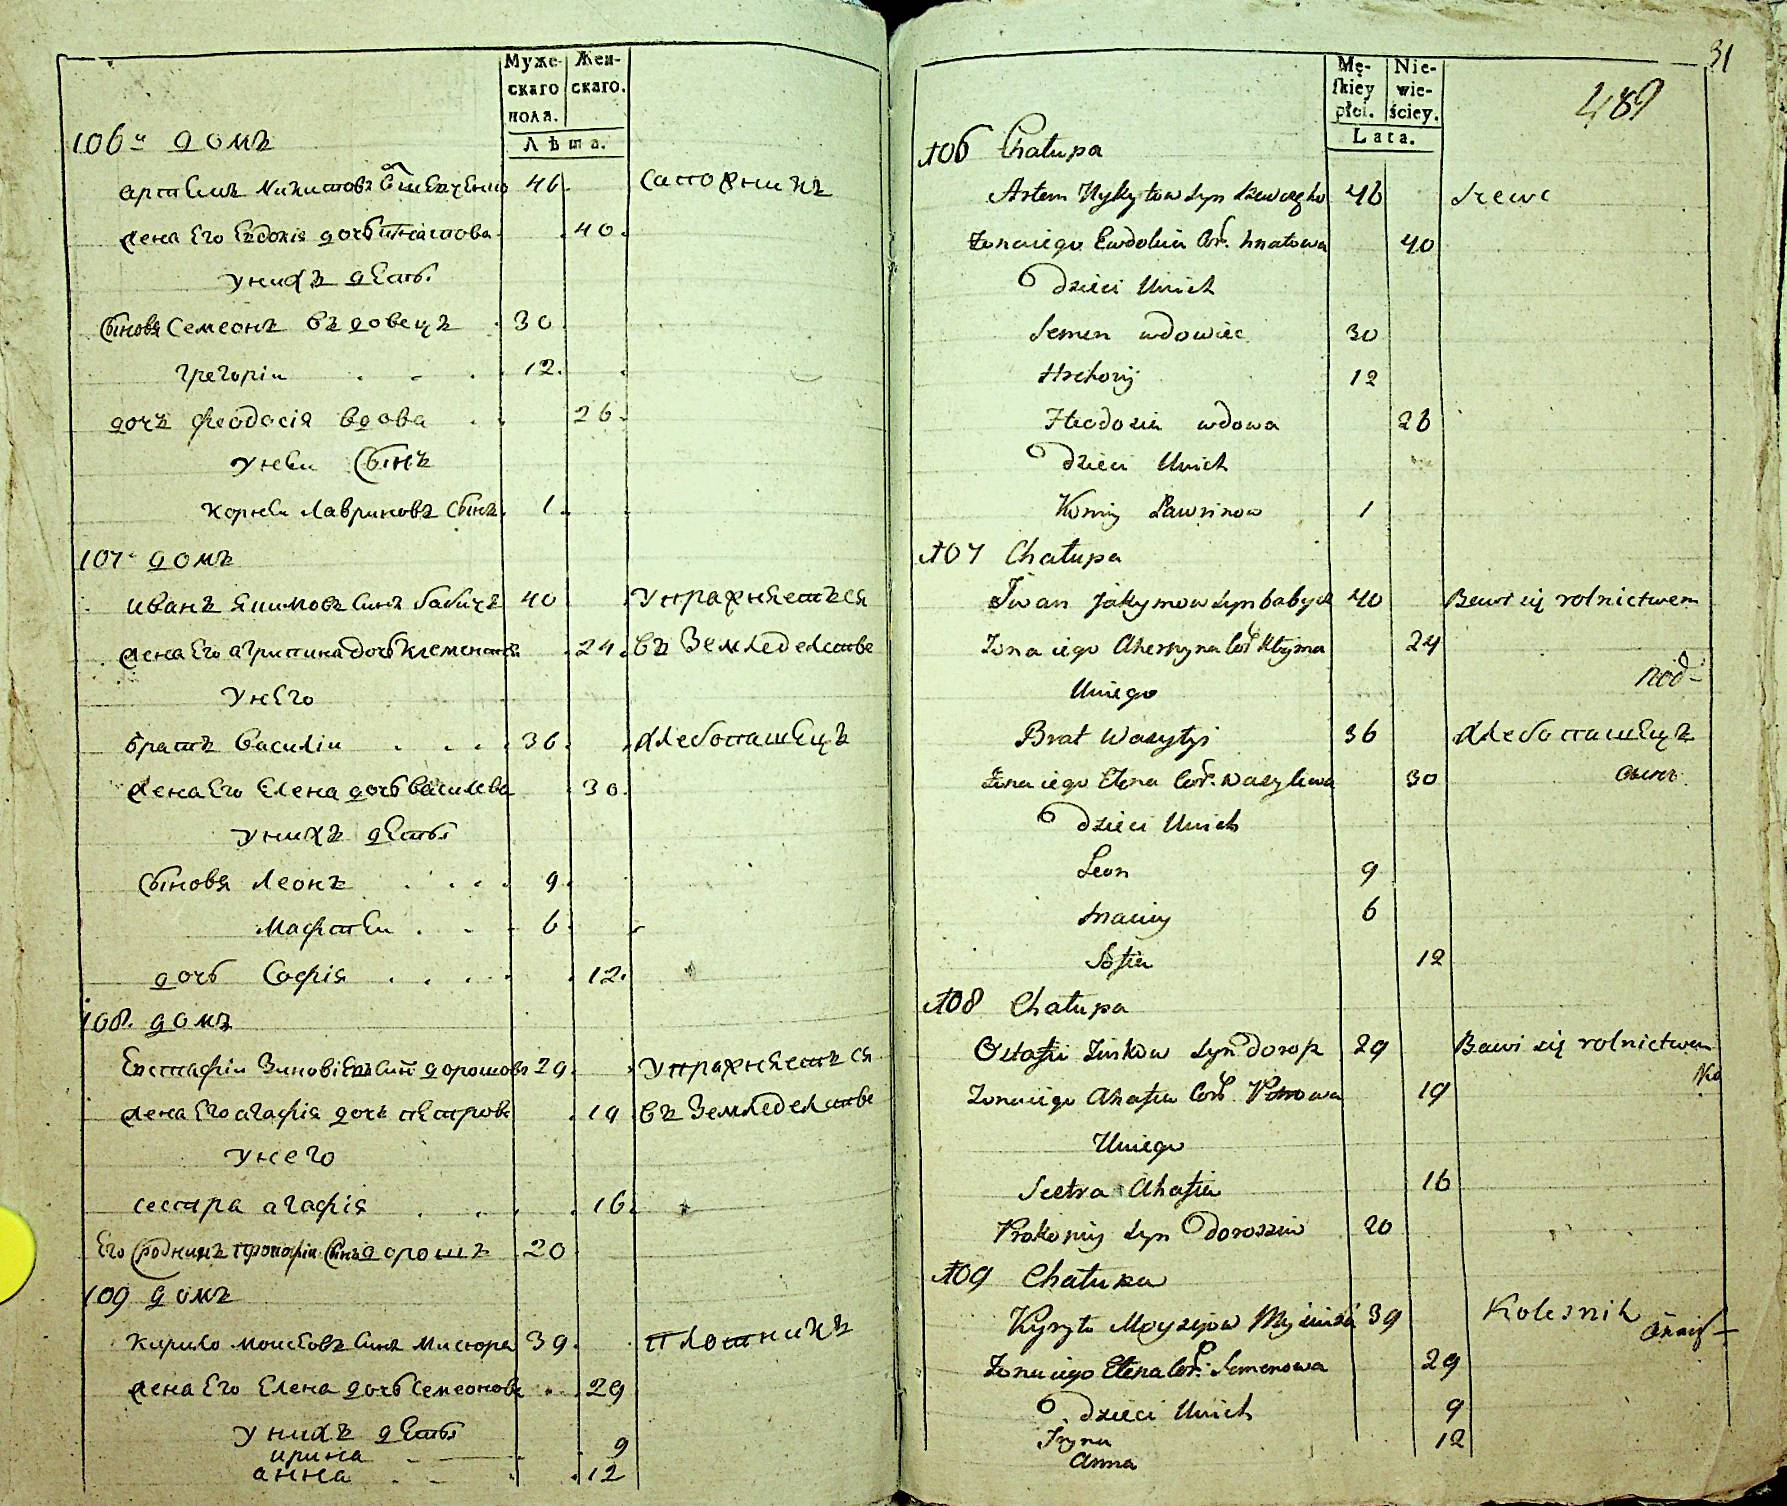 Муже-
скаго
пола.
Жен-
скаго.
Лѣта.
106й домъ
Артемъ Никитовъ Шевченко 46. сапожникъ
жена Его Евдокія дочь Игнатова. 40.
у нихъ дети.
сыновя Семеонъ въдовецъ 30.
Григоріи 12.
дочъ Феодосія вдова 26.
у неи сынъ
Корнеи Лавриновъ сынъ. 1.
107й домъ
Иванъ Якимовъ синъ Бабичъ 40 упражняетъся
жена Его Агрипина дочь Клементя 24. въ Земледелстве
у него
братъ Василіи 36. хлебопашецъ
жена Его Елена дочь Василева 30.
у нихъ дети
сыновя Леонъ 9.
Мафтеи 6.
дочь Софія 12.
108. домъ
Евстафіи Зиновіевъ синъ Дорошовъ 29. упражняетъ ся
жена Его Агафія дочъ Петрова 19 въ Земледелстве
у него
сестра Агафія 16.
Его сродникъ Прокофіи синъ Дорошъ 20
109 домъ
Кирило Моисеовъ синъ Мисюра 39. плотникъ
жена Его Елена дочь Семеонова 29
у нихъ дети
Ирина 9
Анна 12
31
489
Mę-
skiey
płci.
Nie-
wie-
ściey.
Lata.
106 Chałupa
Artem Nykytow syn Szewczęko 46 Szewc
Żona iego Ewdokia Cór. Hnatowa 40
Dzieci U nich
Semen wdowiec 30
Hrehory 12
Fteodozia wdowa 26
Dzieci U nich
Korniy Ławrinow 1
107 Chałupa
Iwan Jakymow syn Babycz 40 Bawi się rolnictwem
Żona iego Aherpyna Cór Kłyma 24
U niego
Brat Wasylyi 36 хлебопашецъ
Żona iego Elena Cór. Wasylewa 30
Dzieci U nich
Leon 9
6
Sofia 12
108 Chałupa
Ostafii Zinkow syn Dorosz 29 Bawi się rolnictwem
Żona iego Ahafia Cór. Petrowa 19
U niego
Siestra Ahafia 16
Prokopiy syn Doroszów 20
109 Chałupa
Kyryło Moyseiow 39 Kolesnik
Żona iego Elena Cór. Semenowa 29
Dzieci U nich 9
Iryna 12
Anna